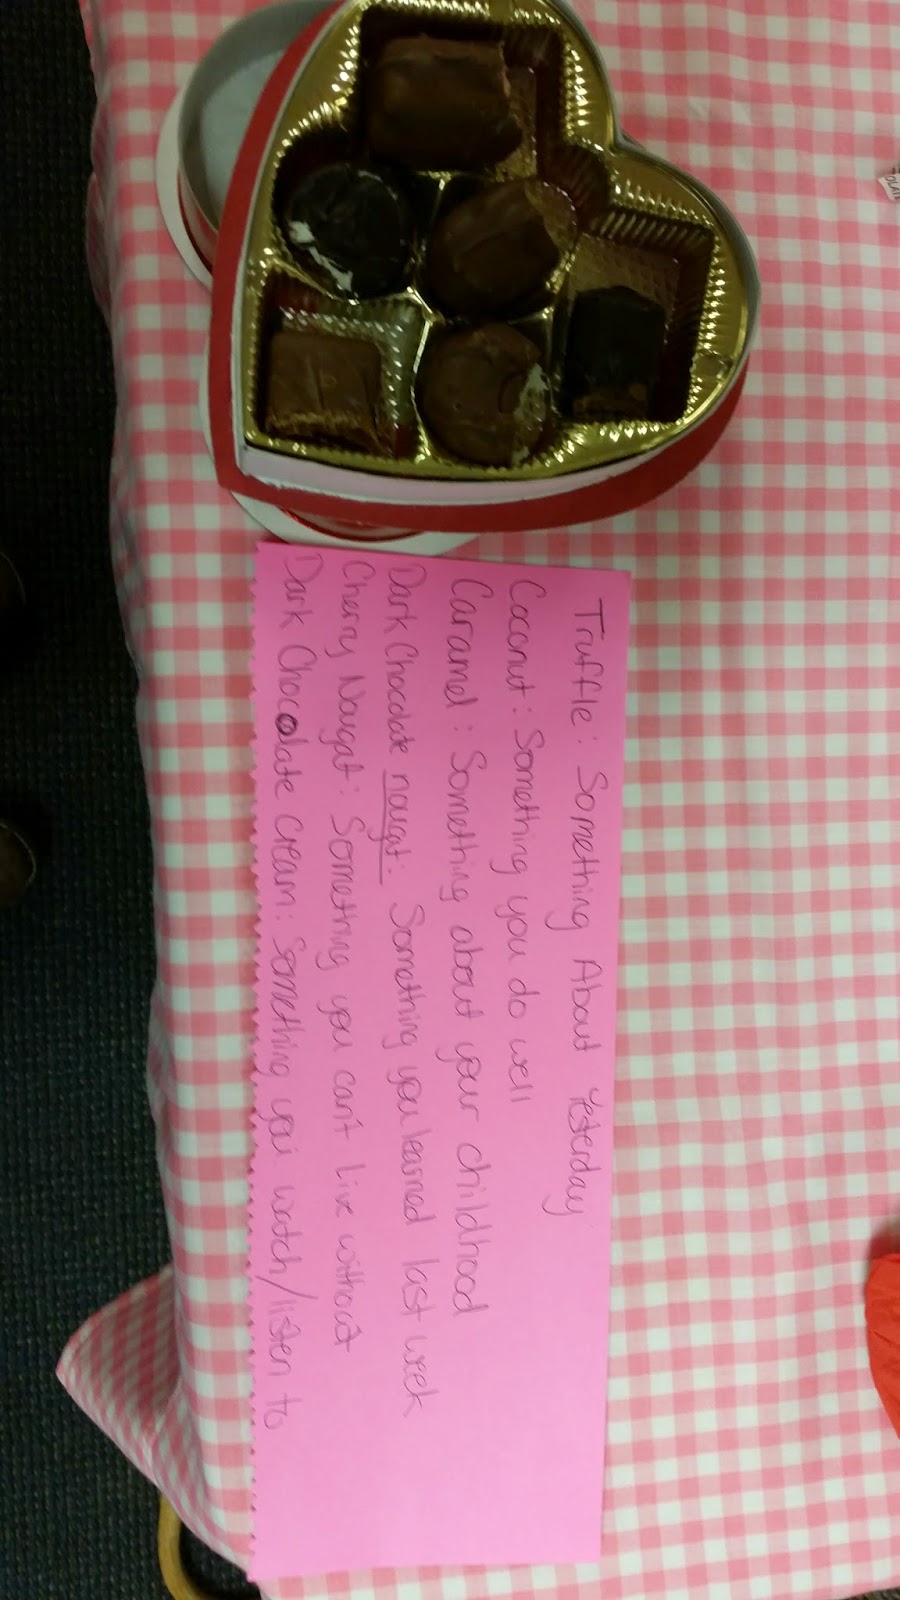 Truffle: Something About Yesterday
Coconut: Something you do well
Caramel: Something about your childhood
Dark Chocolate nougat: Something you learned last week
Cherry Nougat: Something you can't live without
Dark Chocolate Cream: Something you watch/listen to